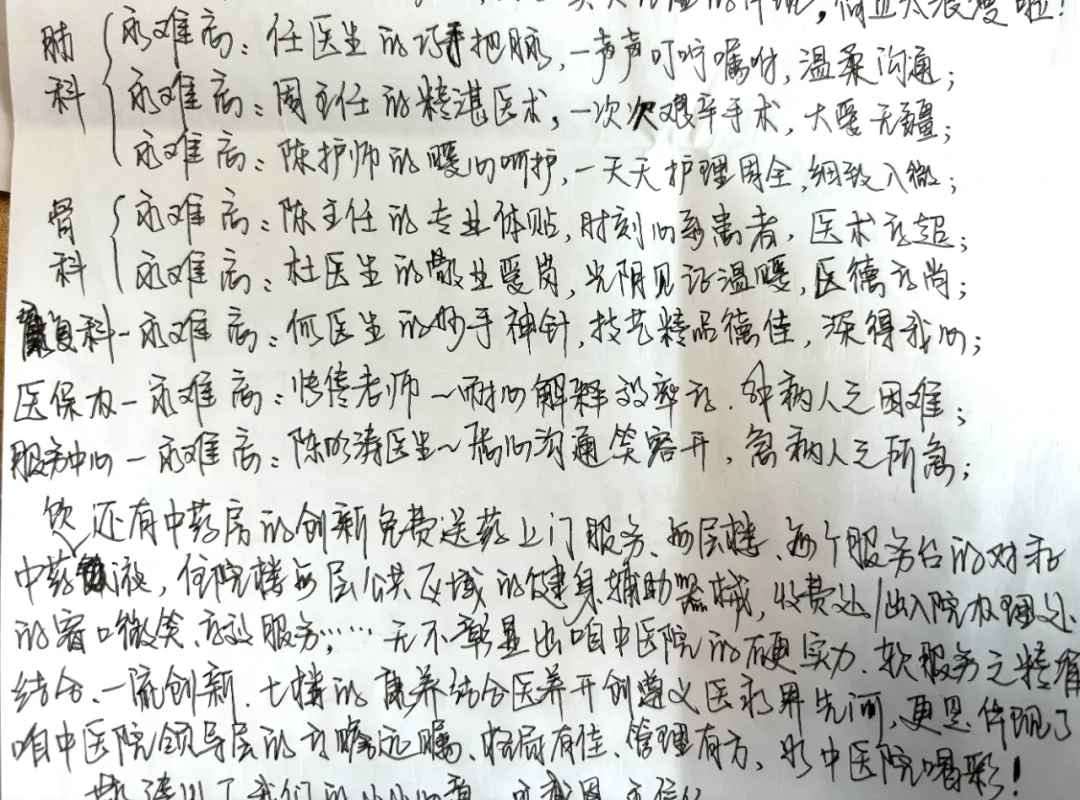 何止太浪漫啦!
肺科 永难忘:任医生的巧手把脉,一声声叮咛嘱咐,温柔沟通;
永难忘:周主任的精湛医术,一次次艰辛手术,大爱无疆;
永难忘:陈护师的暖心呵护,一天天护理周全,细致入微;
骨科 永难忘:陈主任的专业体贴,时刻心系患者,医术高超;
永难忘:杜医生的敬业爱岗,光阴见证温暖,医德高尚;
康复科-永难忘:何医生的妙手神针,技艺精品德佳,深得我心;
医保办-永难忘:老师~耐心解释效率高,解病人之困难;
服务中心-永难忘:陈医生~贴心沟通笑容开,急病人之所急;
还有中药房的创新免费送药上门服务、每层楼、每个服务台的对和
中药饮液,住院楼每层公共区域的健身辅助器械,收费处/出入院办理处
的窗口微笑、高效服务……无不彰显出咱中医院的硬实力、软服务之精准
结合、一流创新、七楼的医养结合医养开创遵义医疗界先河,更是体现了
咱中医院领导层的高瞻远瞩、格局有佳、管理有方,为中医院喝彩!
我们的小小心